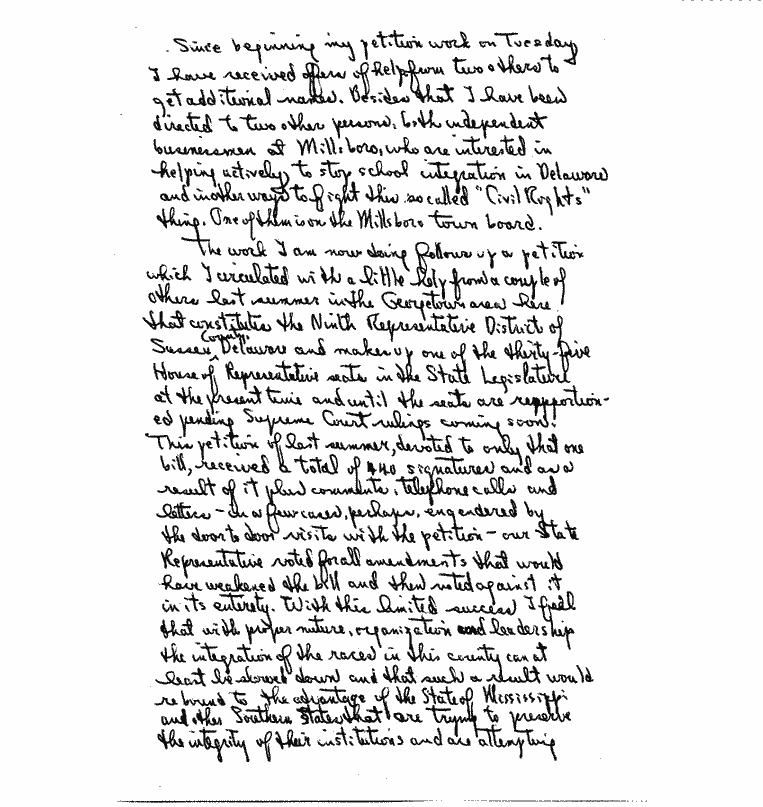 Since beginning my petition work on Tuesday
I have received offers of help from two others to
get additional names. Besides that I have been
directed to two other persons, both independent
businessmen at Millsboro, who are interested in
helping actively to stop school integration in Delaware
and in other ways to fight this so called "Civil Rights"
thing. One of them is on the Millsboro town board.
The work I am now doing follows up a petition
which I circulated with a little help from a couple of
others last summer in the Georgetown area here
that constitutes the Ninth Representative District of
Sussex County Delaware and makes up one of the thirty-five
House of Representative seats in the State Legislature
at the present time and until the seats are reapportion-
ed pending Supreme Court rulings coming soon.
This petition of last summer, devoted to only that one
bill, received a total of 440 signatures and as a
result of it plus comments, telephone calls and
letters - in a few cases, perhaps, engendered by
the door to door visits with the petition - our State
Representative voted for all amendments that would
have weakened the bill and then voted against it
in its entirety. With this limited success I feel
that with proper nuture, organization and leadership
the integration of the races in this county can at
least be slowed down and that such a result would
rebound to the advantage of the State of Mississippi
and other Southern States that are trying to preserve
the integrity of their institutions and are attempting